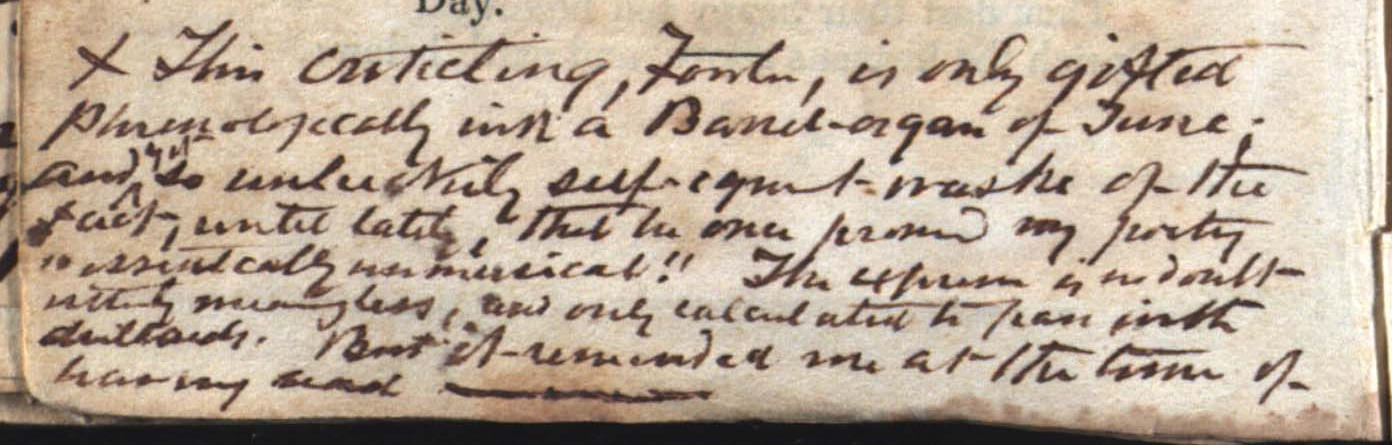 Day.
X This criticling, , is only gifted
phrenologically with a Barrel-organ of Tune;
and, yet so unluckily self-cogni- of the
fact, until lately, that he once my poetry
"essentically unmusical!! The expression is no doubt
utterly meaningless, and only calculated to pass with
dullards. But it reminded me at the time of
having read